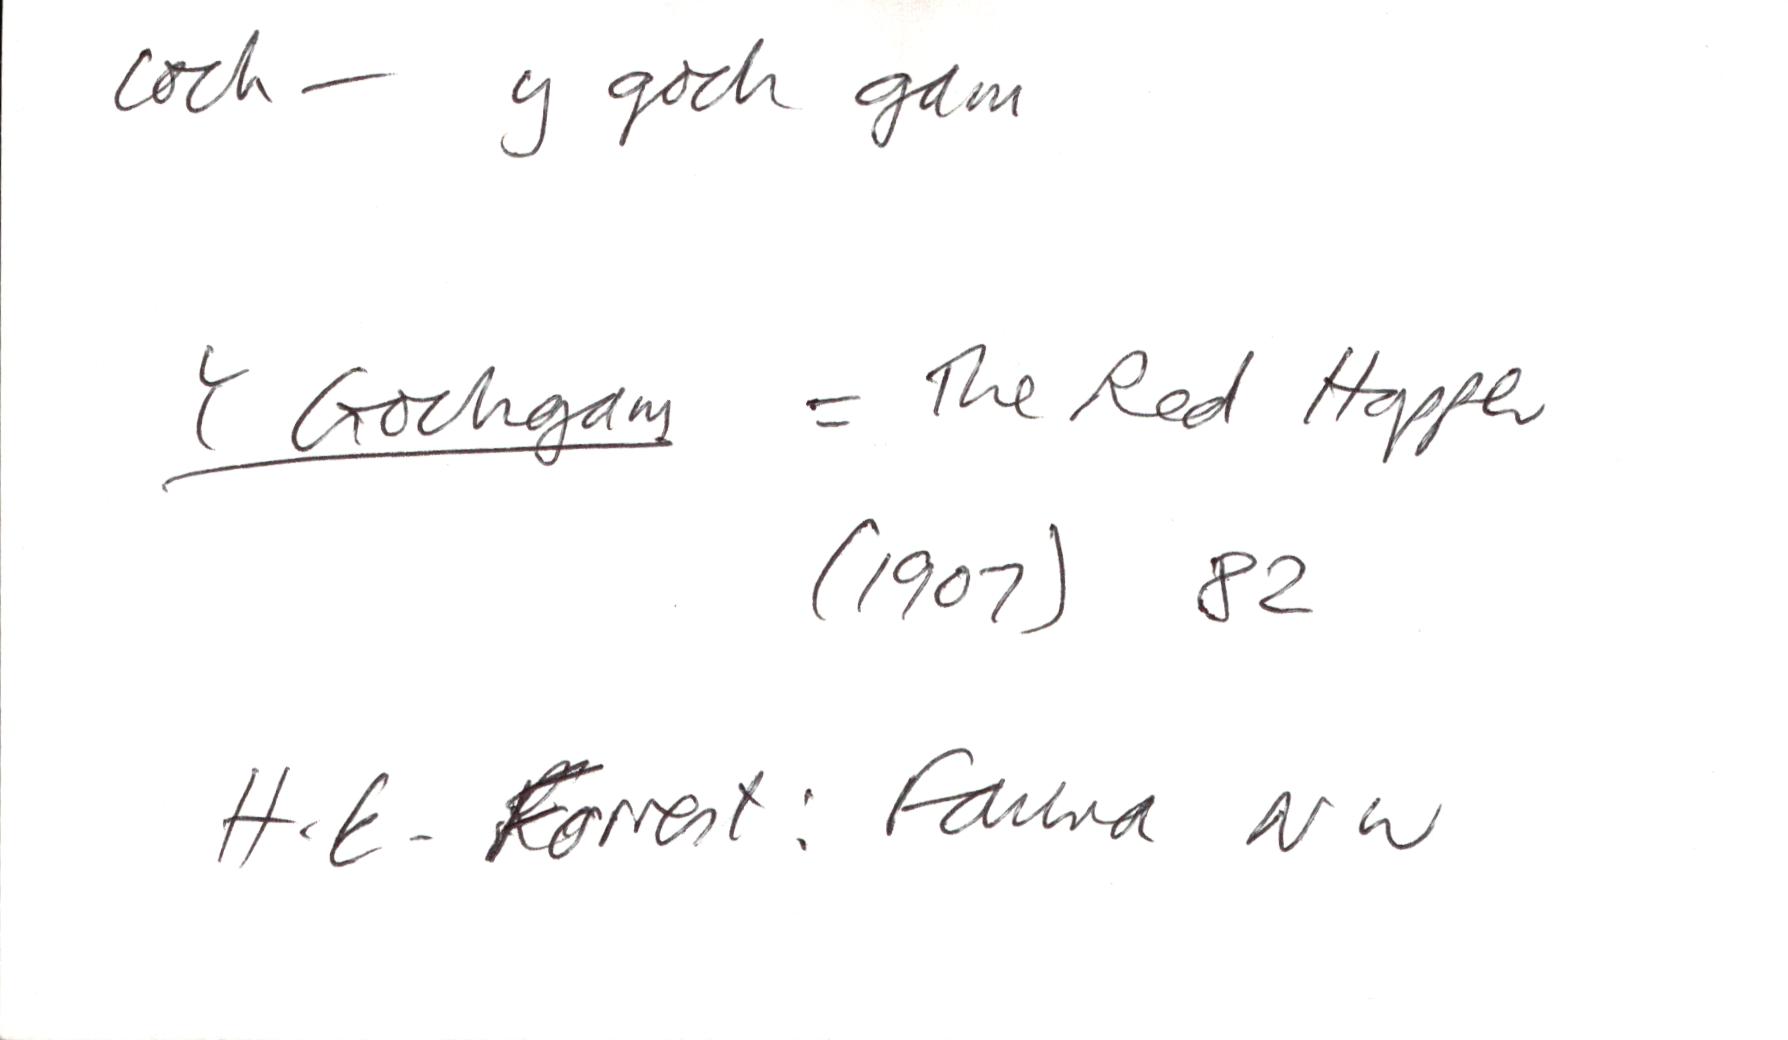 coch — y goch gam
Y Gochgam = The Red Hopper
(1907) 82
H.E. Forrest: Fauna NW